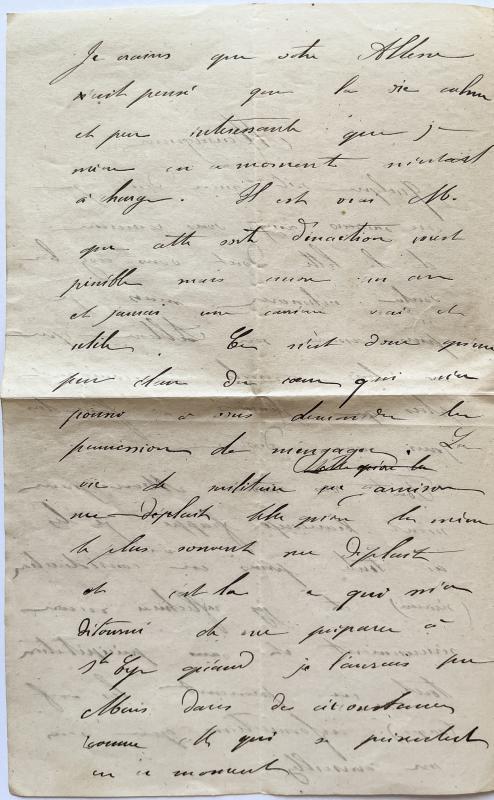 Je crains que votre Altesse
n'ait pensé que la vie calme
et peu intéressante que je
mène en ce moment m'était
à charge. Il est vrai M.
que cette sorte d'inaction m'est
pénible mais encore un an
et j'aurais une carrière vrai et
utile. Ce n'est donc qu'un
pur élan du coeur qui m'a
poussé à vous demander la
permission de m'engager. La
vie de militaire en garnison
me déplait telle qu'on la mène
le plus souvent me déplait
et c'est la ce qui m'a
détourné de me préparer à
St Cyr quand je l'aurais pu
Mais dans des circonstances
comme qui se présentent
en ce moment